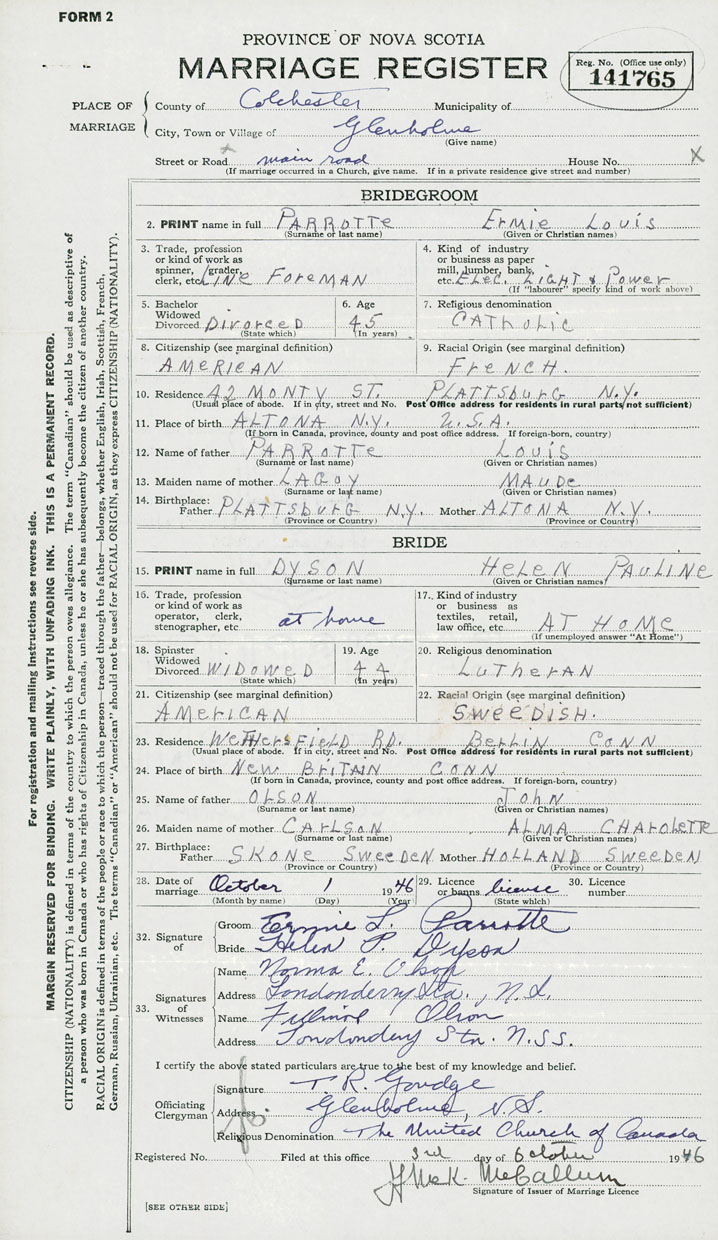 FORM 2
PROVINCE OF NOVA SCOTIA
MARRIAGE REGISTER
Reg. No. (Office use only)
141765
PLACE OF MARRIAGE
County of Colchester Municipality of
City, Town or Village of Glenholme
(Give name)
Street or Road main road House No. X
(If marriage occurred in a Church, give name. If in a private residence give street and number)
BRIDEGROOM
2. PRINT name in full PARROTTE ERMIE LOUIS
(Surname or last name) (Given or Christian names)
3. Trade, profession or kind of work as spinner, grader, clerk, etc. LINE FOREMAN
4. Kind of industry or business as paper mill, lumber, bank, etc. ELEC. LIGHT & POWER
(If "labourer" specify kind of work above)
5. Bachelor Widowed Divorced DIVORCED
(State which)
6. Age 45
(In years)
7. Religious denomination CATHOLIC
8. Citizenship (see marginal definition) AMERICAN
9. Racial Origin (see marginal definition) FRENCH.
10. Residence 42 MONTY ST. PLATTSBURG N.Y.
(Usual place of abode. If in city, street and No. Post Office address for residents in rural parts not sufficient)
11. Place of birth ALTONA N.Y. U.S.A.
(If born in Canada, province, county and post office address. If foreign-born, country)
12. Name of father PARROTTE LOUIS
(Surname or last name) (Given or Christian names)
13. Maiden name of mother LAGOY MAUDE
(Surname or last name) (Given or Christian names)
14. Birthplace: Father PLATTSBURG N.Y. Mother ALTONA N.Y.
(Province or Country) (Province or Country)
BRIDE
15. PRINT name in full DYSON HELEN PAULINE
(Surname or last name) (Given or Christian names)
16. Trade, profession or kind of work as operator, clerk, stenographer, etc at home
17. Kind of industry or business as textiles, retail, law office, etc. AT HOME
(If unemployed answer "At Home")
18. Spinster Widowed Divorced WIDOWED
(State which)
19. Age 44
(In years)
20. Religious denomination LUTHERAN
21. Citizenship (see marginal definition) AMERICAN
22. Racial Origin (see marginal definition) SWEEDISH.
23. Residence WETHERSFIELD RD. BERLIN CONN
(Usual place of abode. If in city, street and No. Post Office address for residents in rural parts not sufficient)
24. Place of birth NEW BRITAIN CONN
(If born in Canada, province, county and post office address. If foreign-born, country)
25. Name of father OLSON JOHN
(Surname or last name) (Given or Christian names)
26. Maiden name of mother CARLSON ALMA CHAROLETTE
(Surname or last name) (Given or Christian names)
27. Birthplace: Father SKONE SWEEDEN Mother HOLLAND SWEEDEN
(Province or Country) (Province or Country)
28. Date of marriage October 1 1946 29. Licence or banns license 30. Licence number
(Month by name) (Day) (Year) (State which)
32. Signature of
Groom Ermie L. Parrotte
Bride Helen P. Dyson
33. Signatures of Witnesses
Name Norma E. Olson
Address Londonderry Sta., N.S.
Name Olson
Address Londondery Stn. N.SS.
I certify the above stated particulars are true to the best of my knowledge and belief.
Officiating Clergyman
Signature T. R. Goudge
Address Glenholme, N.S.
Religious Denomination The United Church of Canada
Registered No. Filed at this office 3rd day of October 1946
McCallum
Signature of Issuer of Marriage Licence
[SEE OTHER SIDE]
For registration and mailing instructions see reverse side.
MARGIN RESERVED FOR BINDING. WRITE PLAINLY, WITH UNFADING INK. THIS IS A PERMANENT RECORD.
CITIZENSHIP (NATIONALITY) is defined in terms of the country to which the person owes allegiance. The term "Canadian" should be used as descriptive of
a person who was born in Canada or who has rights of Citizenship in Canada, unless he or she has subsequently become the citizen of another country.
RACIAL ORIGIN is defined in terms of the people or race to which the person—traced through the father—belongs, whether English, Irish, Scottish, French,
German, Russian, Ukrainian, etc. The terms "Canadian" or "American" should not be used for RACIAL ORIGIN, as they express CITIZENSHIP (NATIONALITY).